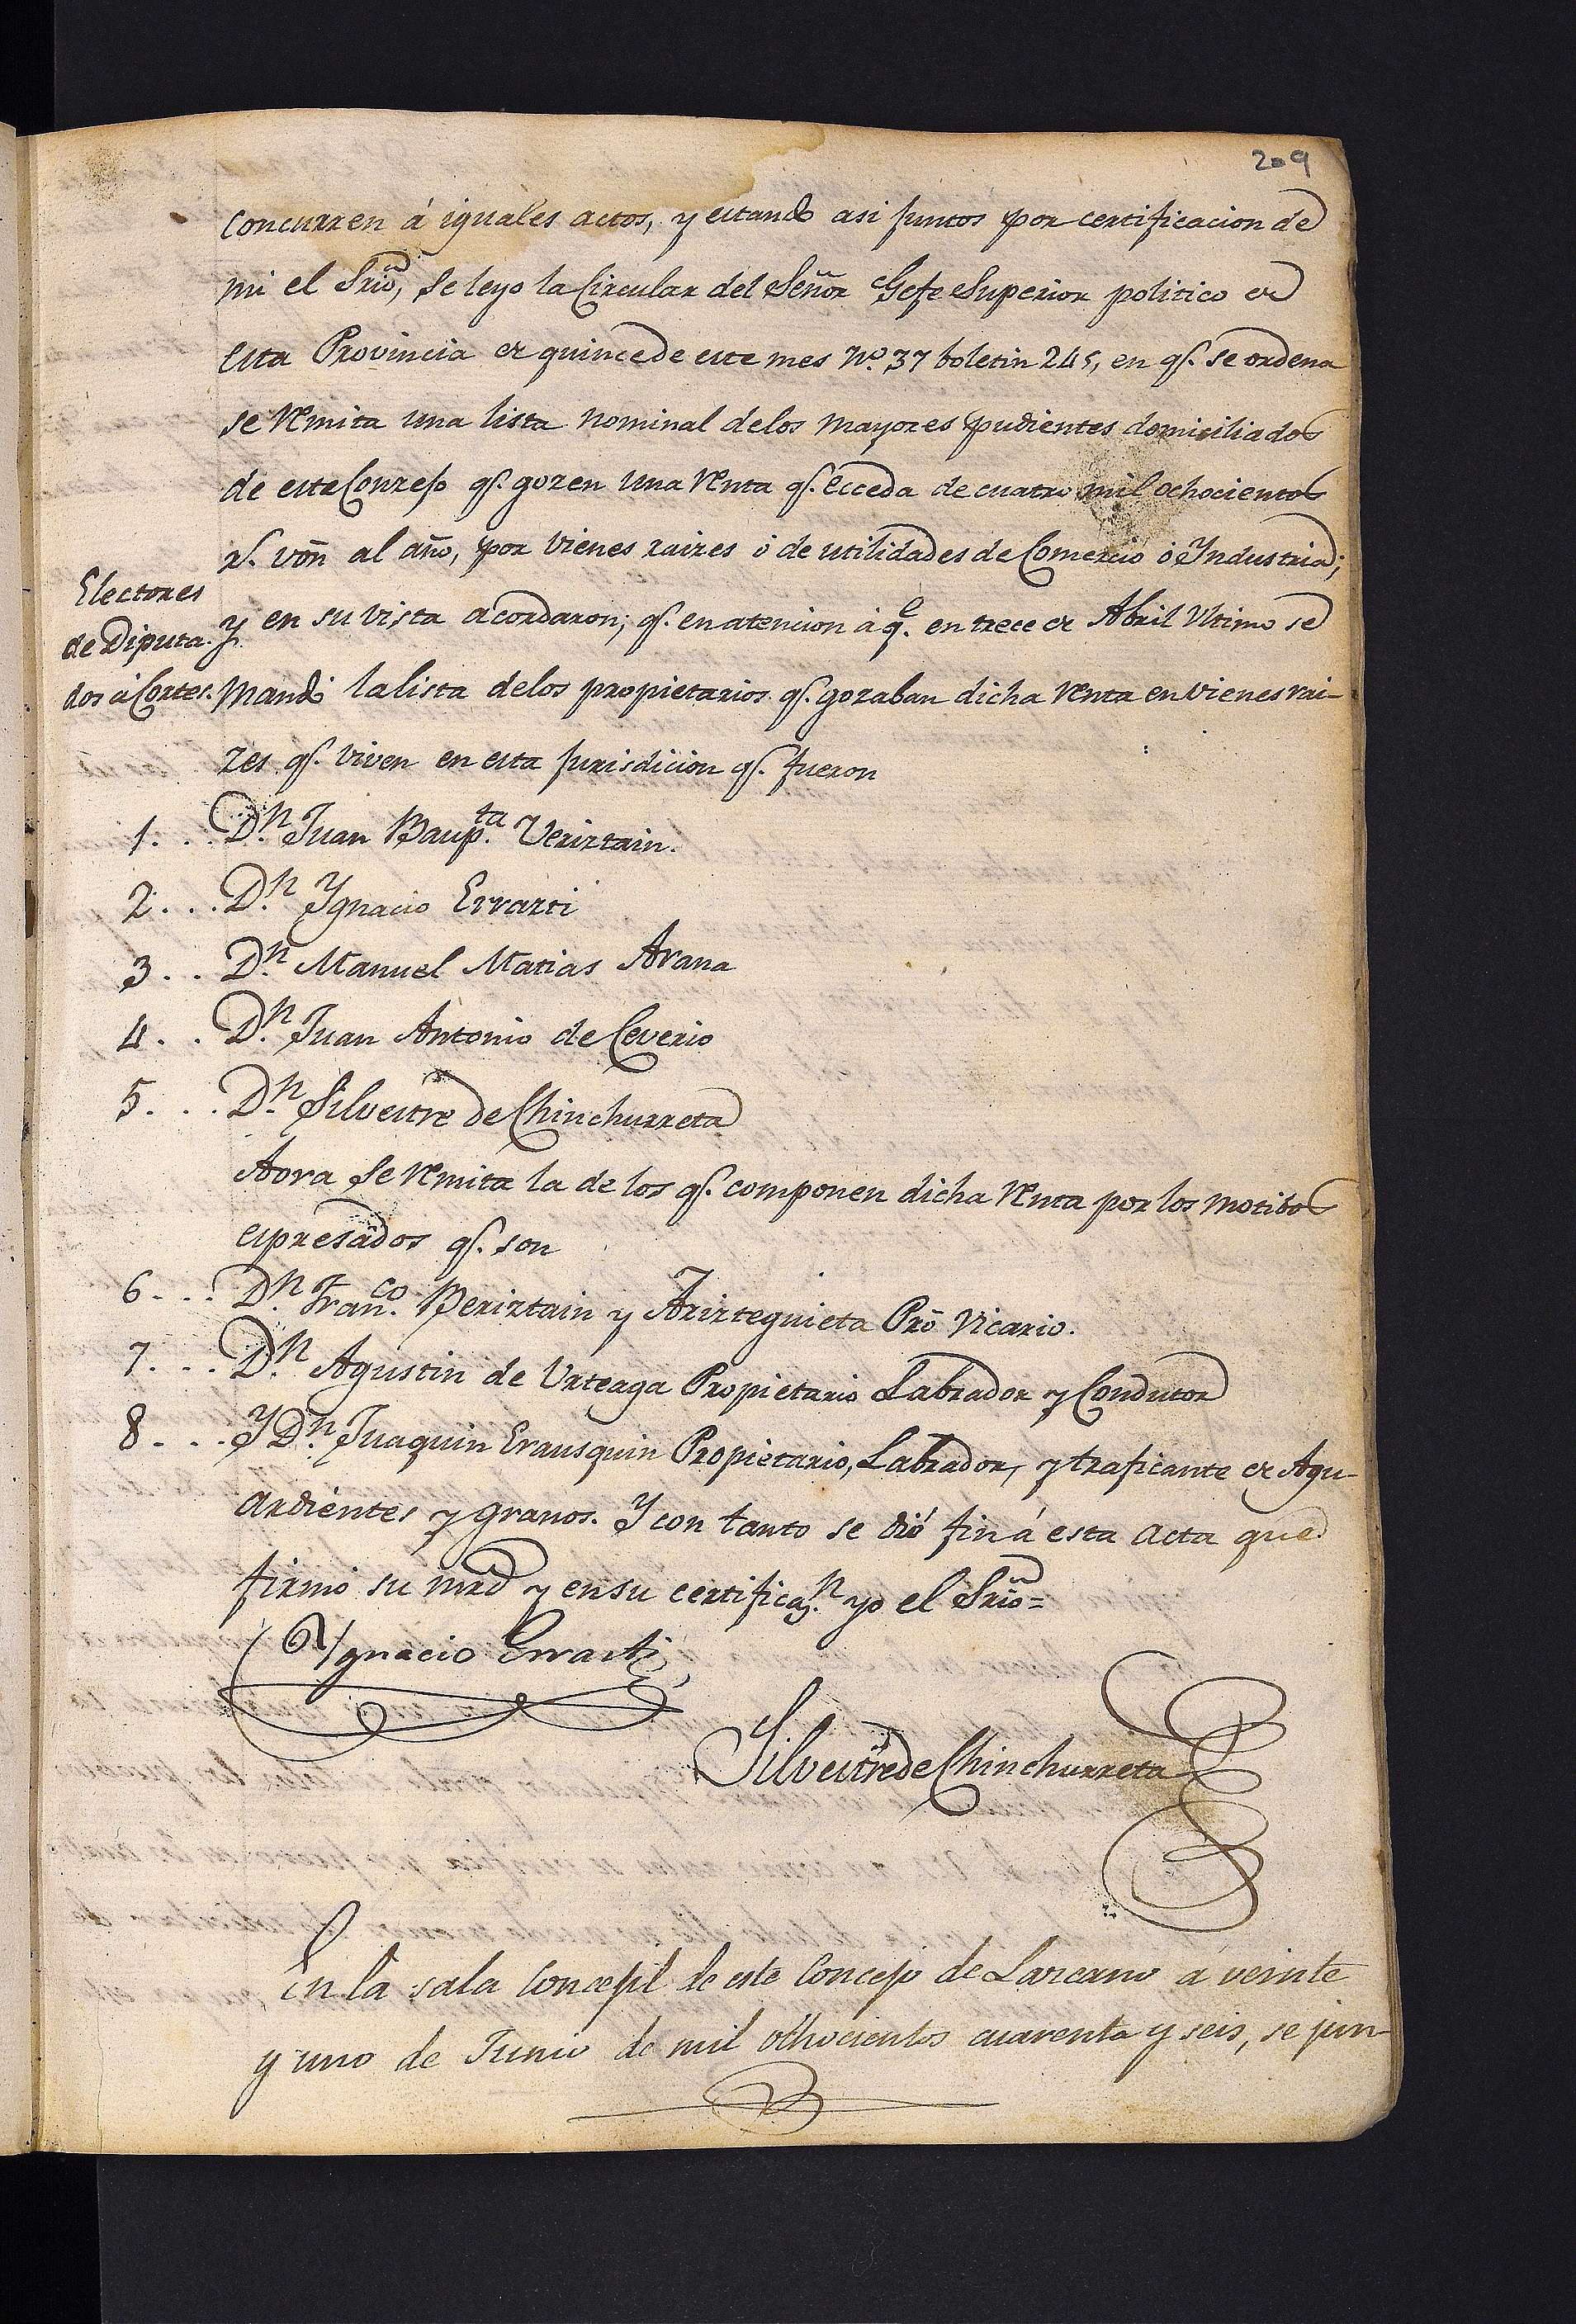 209
concurren á iguales actos, y estando asi juntos por certificacion de
mi el Srio, se leyo la Circular del Señor Gefe Superior politico de
esta Provincia de quince de este mes Nº. 37 boletin 245, en qe. se ordena
se remita una lista nominal de los mayores pudientes domiciliados
de este Concejo qe. gozen una renta qe. ecceda de cuatro mil ochocientos
rs. von al año, por vienes raizes ó de utilidades de Comercio ó Yndustria;
Electores
de Diputa-
dos á Cortes.
y en su vista acordaron; qe. en atencion á qe. en trece de Abril Ultimo se
mandó la lista de los propietarios qe. gozaban dicha renta en vienes rai-
zes qe. viven en esta jurisdicion qe. fueron
1... Dn. Juan Baupta. Veriztain.
2... Dn. Ygnacio Errazti
3.. Dn. Manuel Matias Arana
4.. Dn. Juan Antonio de Ceverio
5... Dn. Silvestre de Chinchurreta
Aora se remita la de los qe. componen dicha renta por los motibos
espresados qe. son
6... Dn. Franco. Beriztain y Arizteguieta Pro Vicario.
7... Dn. Agustin de Urteaga Propietario Labrador y Condutor
8... Y Dn. Juaquin Erausquin Propietario, Labrador, y traficante de Agu-
ardientes y granos. Y con tanto se dió fin á esta acta que
firmó su mrd y en su certificazn. yo el Srio=
Ygnacio Errasti
Silvestre de Chinchurreta
En la sala Concejil de este Concejo de Lazcano á veinte
y uno de Junio de mil ochocientos cuarenta y seis, se jun-